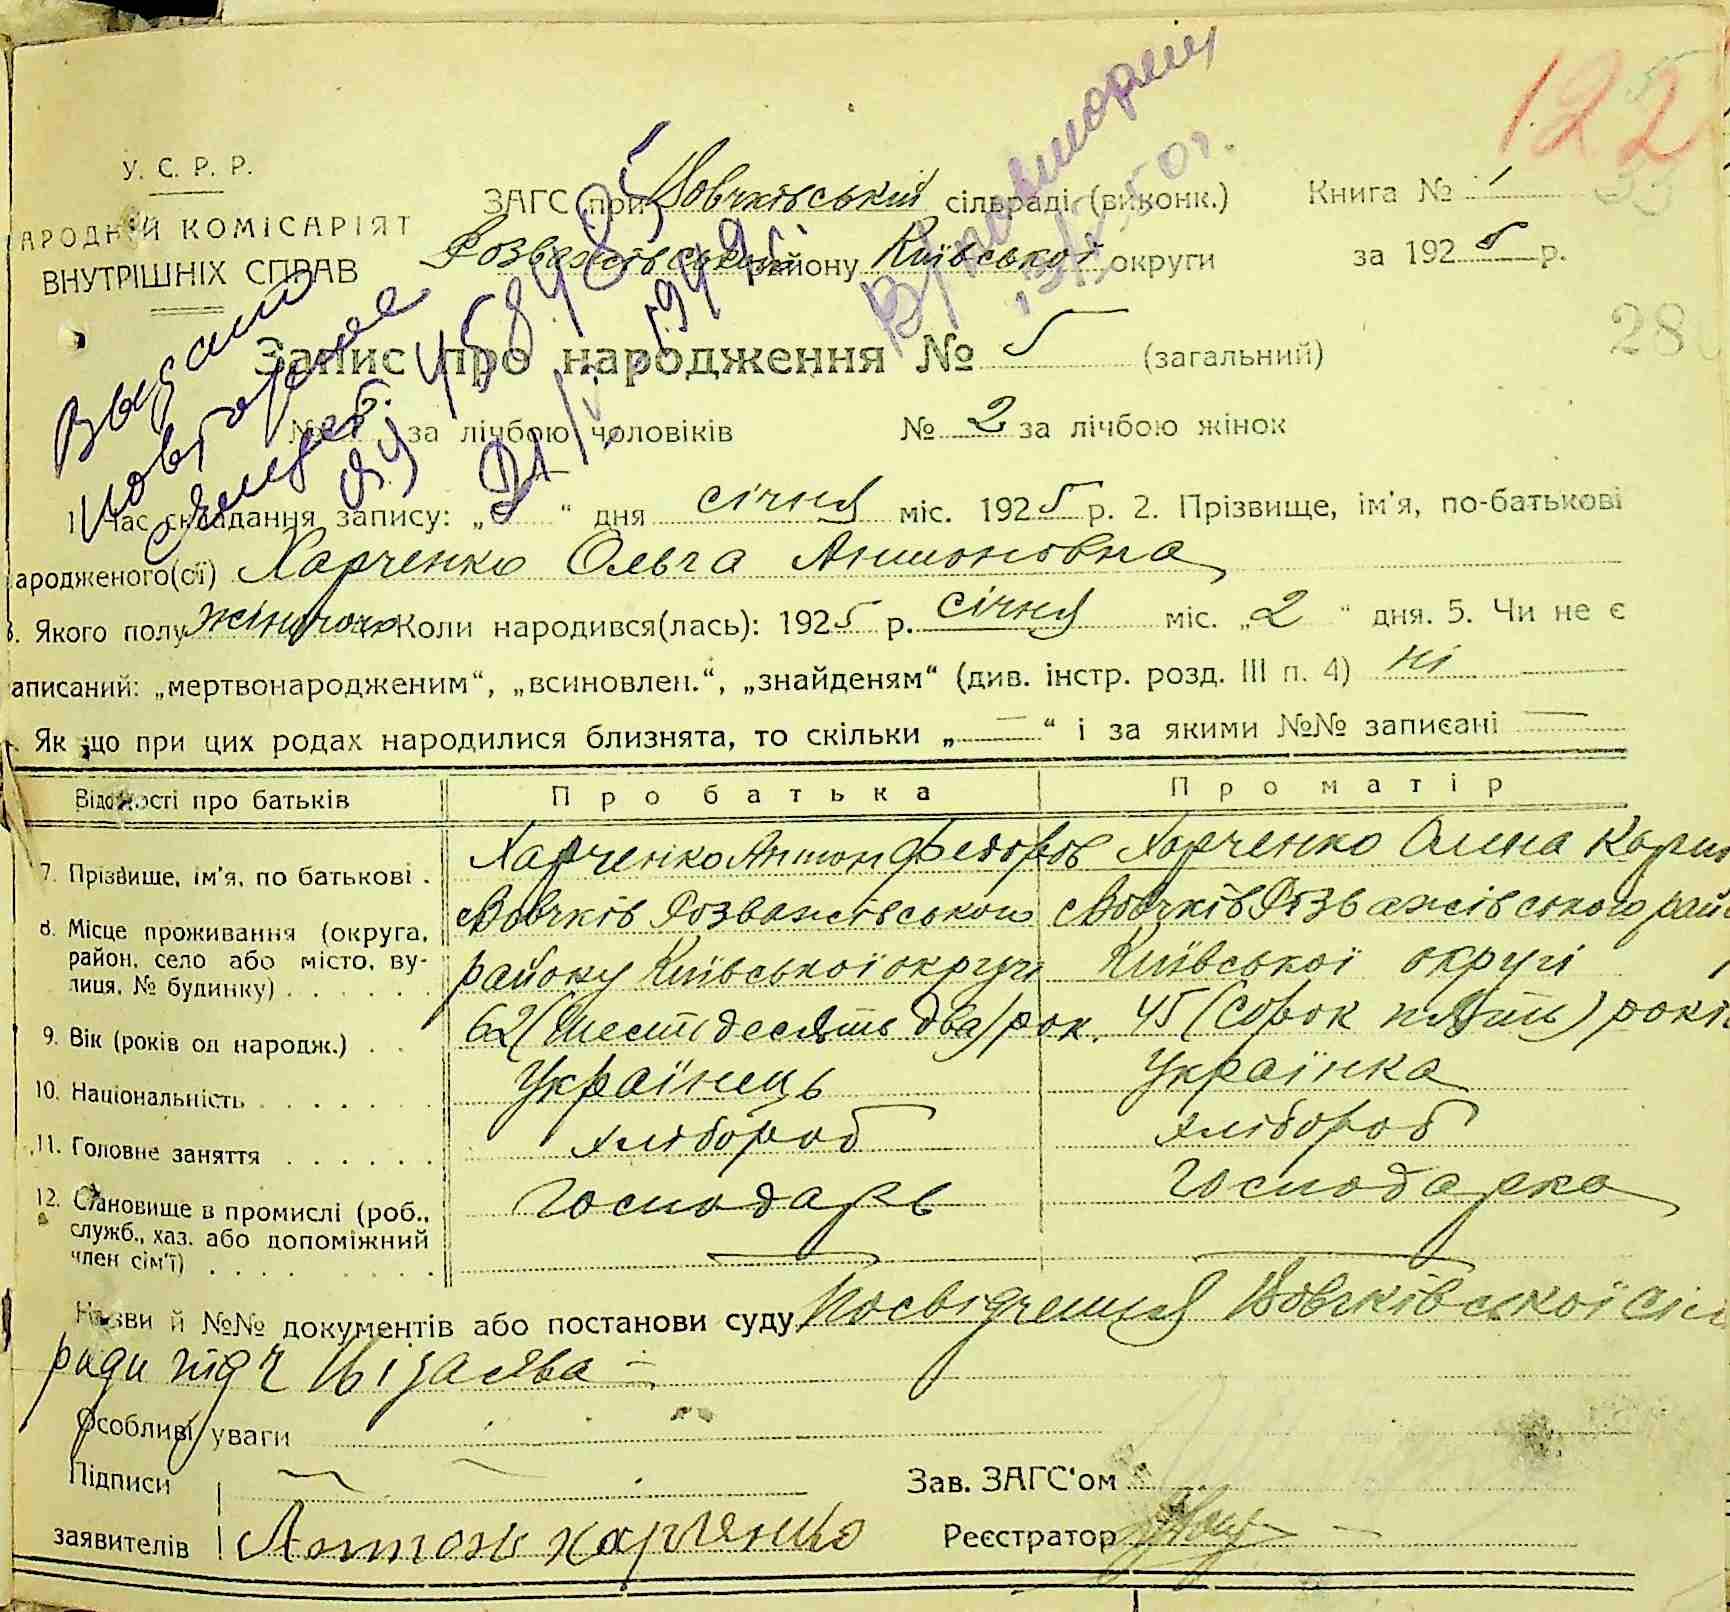 122
У. С. Р. Р.
АРОДНІЙ КОМІСАРІЯТ
ВНУТРІШНІХ СПРАВ
ЗАГС при Вовчківський сільраді (виконк.)
Книга № 1
33
Розважівський району Київської округи
за 1925 р.
28
Запис про народження № 5 (загальний)
№ за лічбою чоловіків
№ 2 за лічбою жінок
Видано
повторное
ЯУ 458485
1949
В/повторний
50 г.
1 Час складання запису: „ “ дня січня міс. 1925 р. 2. Прізвище, ім'я, по-батькові
ародженого(ої) Харченко Ольга Антоновна
3. Якого полу жіночого Коли народився(лась): 1925 р. січня міс. „2“ дня. 5. Чи не є
аписаний: „мертвонародженим“, „всиновлен.“, „знайденям“ (див. інстр. розд. III п. 4) ні
Як що при цих родах народилися близнята, то скільки „—“ і за якими №№ записані —
Відомості про батьків
Про батька
Про матір
7. Прізвище, ім'я, по батькові .
Харченко Антон Федоров
Харченко Олена
8. Місце проживання (округа, район, село або місто, вулиця, № будинку) . . . . .
с Вовчків Розважівського
району Київської округи
с Вовчків Розважівського рай
Київської округі
9. Вік (років од народж.) . .
62 (шестьдесять два) рок.
45 (сорок пять) років
10. Національність . . . . . .
Українець
Українка
11. Головне заняття . . . . . .
хлібороб
хлібороб
12. Становище в промислі (роб., служб., хаз. або допоміжний член сім'ї) . . . . . . .
Господарь
Господарка
Назви й №№ документів або постанови суду Посвідчення Вовчківської сіл
ради під ч і заява
Особливі уваги
Підписи
Зав. ЗАГС'ом
заявителів
Антон харченко
Реєстратор